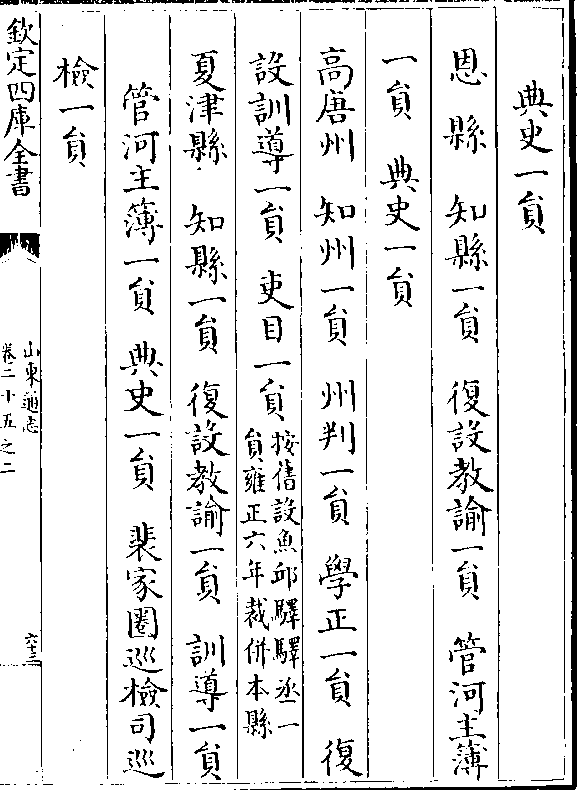 典史一員
恩縣　知縣一員　復設教諭一員　管河主簿
一員　典史一員
高唐州　知州一員　州判一員　學正一員　復
設訓導一員　吏目一員
按舊設魚邱驛驛丞一
員雍正六年裁併本縣
夏津縣　知縣一員　復設教諭一員　訓導一員
管河主簿一員　典史一員　裴家圏巡檢司巡
檢一員
欽定四庫全書
山東通志
卷二十五之二